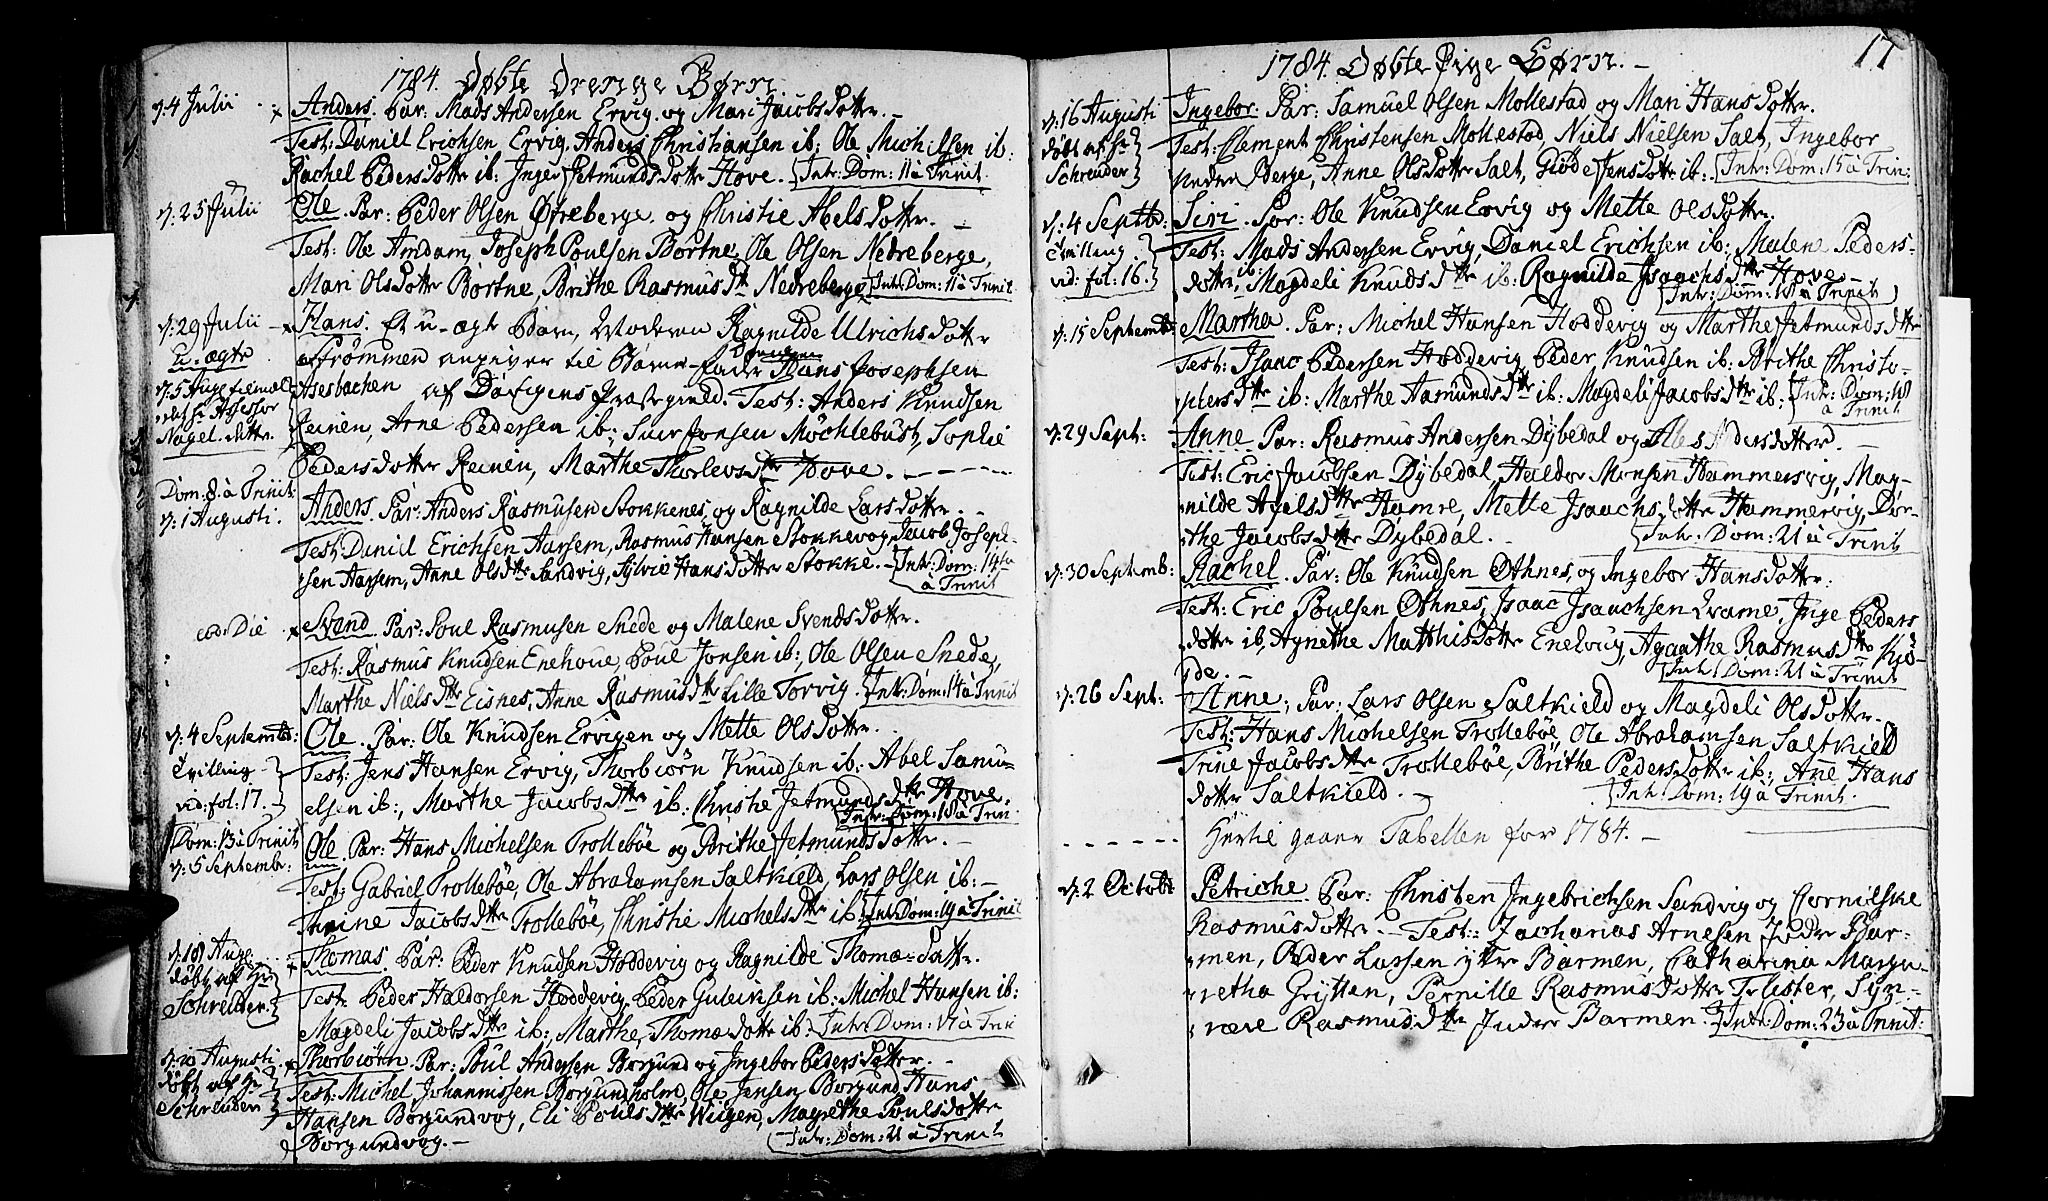 1784. Døbte Drenge Børn.
d: 4 Julii
Anders. Par: Mads Andersen Ervig og Mari Jacobsdotter. –
Test: Daniel Erichsen Ervig, Anders Christiansen ib: Ole Michelsen ib:
Rachel Pedersdotter ib: Inger Jetmundsdotter Hove. Intr: Dom: 11 à Trinit.
d: 25 Julii
Ole. Par: Peder Olsen Øtreberge og Christie Abelsdotter. –
Test: Ole Amdam, Joseph Poulsen Børtne, Ole Olsen Nedreberge,
Mari Olsdotter Børtne, Brithe Rasmusdtr Nedreberge Intr: Dom: 11 à Trinit.
d: 29 Julii
u-ægte
Hans. Et u-ægte Barn, Moderen Ragnilde Ulrichsdotter
Strømmen angiver til Barne-fader Hans Josephsen
d: 5 Aug:
Aasesbachen af Davigens Præstegield. Test: Anders Knudsen
Hr Assessor
Nagel
Reinen, Arne Pedersen ib: Siur Jonsen Möchlebust, Sophie
Pedersdotter Reinen, Marthe Thorlevsdtter Hove. –
Dom: 8 à Trinit:
d: 1 Augusti.
Anders. Par: Anders Rasmusen Stokkenes, og Ragnilde Larsdotter. –
Test: Daniel Erichsen Aarsem, Rasmus Hansen Stokkevog, Jacob Joseph-
sen Aarsem, Anne Olsdtter Sandvig, Sylvie Hansdotter Stokke. – Intr: Dom: 14
à Trinit
eod: Die
Svend. Par: Poul Rasmusen Snede og Malene Svendsdotter.
Test: Rasmus Knudsen Enehoue, Poul Jonsen ib:, Ole Olsen Snede,
Marthe Nielsdtr Eisnes, Anne Rasmusdtr Lille Torvig. Intr: Dom: 14 à Trinit
d: 4 Septembr:
Tvilling
vid: fol: 17.
Ole. Par: Ole Knudsen Ervigen og Mette Olsdotter.
Test: Jens Hansen Ervig, Thorbiörn Knudsen ib: Abel Samu-
elsen ib:, Marthe Jacobsdtter ib: Christie Jetmundsdtter Hove.
Intr: Dom: 18 à Trin:
Dom: 13 à Trinit
d: 5 Septembr:
Ole. Par: Hans Michelsen Trollebøe og Brithe Jetmundsdotter. –
Test: Gabriel Trollebøe, Ole Abrahamsen Saltkield, Lars Olsen ib: –
Thrine Jacobsdtter Trollebøe, Christie Michelsdtter ib: Intr: Dom: 19 à Trinit
d: 18 Aug:
døbt af Hr
Schreuder.
Thomas. Par: Peder Knudsen Hoddevig og Ragnilde Thomæ-datter.
Test: Peder Haldorsen Hoddevig, Peder Guleiksen ib: Michel Hansen ib:
Magdeli Jacobsdtter ib: Marthe Thomædotter ib: Intr: Dom: 17 à Trin
d: 20 Augusti
døbt af Hr
Schreuder
Thorbiörn. Par: Poul Andersen Borgund og Ingebor Pedersdotter. –
Test: Michel Johannissen Borgundholm, Ole Jensen Borgund, Hans
Hansen Borgundvog, Eli Poulsdtter Wiigen, Magrethe Poulsdotter
Borgundvog. –
Intr: Dom: 21 à Trinit
17
1784. Døbte Pige Börn. –
d: 16 Augusti
døbt af Hr
Schreuder
Ingebor. Par: Samuel Olsen Mollestad og Mari Hansdotter.
Test: Clement Christensen Mollestad, Niels Nielsen Salt, Ingebor
Neder Berge, Anne Olsdotter Salt, Giøde Jensdotter ib: Intr: Dom: 15 à Trin:
d: 4 Septbr:
Tvilling
vid: fol: 16.
Siri. Par: Ole Knudsen Ervig og Mette Olsdotter.
Test: Mads Andersen Ervig, Daniel Erichsen ib: Malene Peders-
dotter ib, Magdeli Knudsdtter ib: Ragnilde Isaachsdtter Hove. –
Intr: Dom: 18 à Trinit
d: 15 Septembr:
Martha. Par: Michel Hansen Hoddevig og Marthe Jetmundsdtter
Test: Isaac Pedersen Hoddevig, Peder Knudsen ib: Brithe Christo-
phersdtter ib: Marthe Aamundsdtter ib: Magdeli Jacobsdtter ib: Intr: Dom: 18
à Trinit
d: 29 Sept:
Anne. Par: Rasmus Andersen Dybedal og
Test: Eric Jacobsen Dybedal, Haldor Monsen Hammersvig, Mag-
nilde Axelsdtter Hamre, Mette Isaachsdotter Hammervig, Dor-
the Jacobsdtter Dybedal. –
Intr: Dom: 21 à Trinit
d: 30 Septemb:
Rachel. Par: Ole Knudsen Othnes, og Ingebor Hansdotter:
Test: Eric Poulsen Othnes, Isaac Isaachsen Qvame, Inge Peders
dotter ib, Agnethe Matthisdotter Enehoug, Agaathe Rasmusdtter Kiö-
de. –
Intr: Dom: 21 à Trinit
d: 26 Sept:
Anne; Par: Lars Olsen Saltkield og Magdeli Olsdotter.
Test: Hans Michelsen Trollebøe, Ole Abrahamsen Saltkield
Trine Jacobsdtter Trollebøe, Brithe Pedersdotter ib:, Anne Hans
dotter Saltkield. –
Intr: Dom: 19 à Trinit.
Hertil gaaer Tabellen for 1784. –
d: 2 Octobr
Petriche. Par: Christen Ingebrichsen Sandvig og Cornilske
Rasmusdotter. – Test: Zacharias Arnesen Indre Bar-
men, Peder Lassen ytter Barmen, Catharina Marga-
retha Grytten, Pernille Rasmusdotter Frister, Syn-
neve Rasmusdtter Inder Barmen. Intr: Dom: 23 à Trinit: